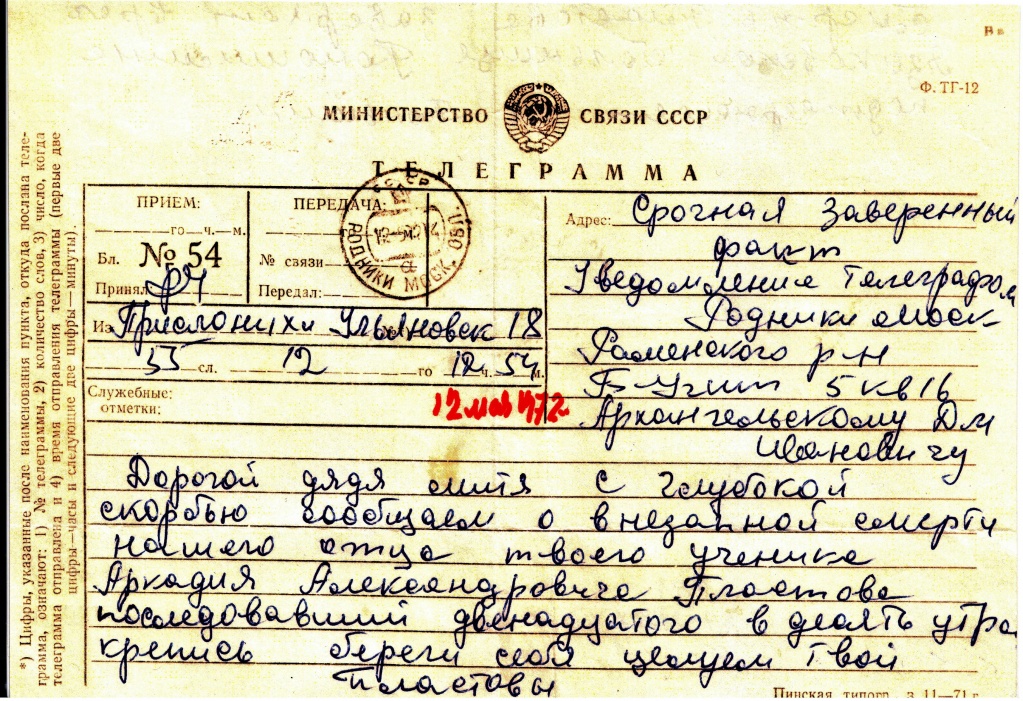 Ф. ТГ-12
МИНИСТЕРСТВО СВЯЗИ СССР
ТЕЛЕГРАММА
ПРИЕМ:
го ч. м.
Бл. № 54
Принял:
ПЕРЕДАЧА:
№ связи
Передал:
СССР
РОДНИКИ МОСК. ОБЛ
а
Из Прислонихи Ульяновск 18
55 сл. 12 го 12 ч. 54 м.
Служебные отметки:
12 мая 1972
Адрес: Срочная Заверенный
факт
Уведомление телеграфом
Родники Моск
Раменского р-н
5 кв 16
Архангельскому Дм
Ивановичу
Дорогой дядя митя с глубокой
скорбью сообщаем о внезапной смерти
нашего отца твоего ученика
Аркадия Александровича Пластова
последовавший двенадцатого в десять утра
крепись береги себя целуем твои
Пластовы
Пинская типогр. з. 11—71 г.
*) Цифры, указанные после наименования пункта, откуда послана теле-
грамма, означают: 1) № телеграммы, 2) количество слов, 3) число, когда
телеграмма отправлена и 4) время отправления телеграммы (первые две
цифры—часы и следующие две цифры—минуты).